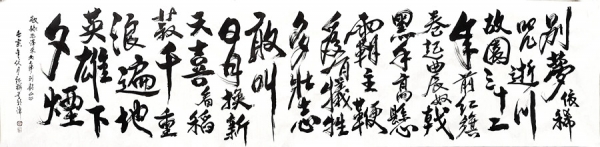 别夢依稀
咒逝川
故園三十二
年前红旗
卷起農奴戟
黑手高懸
霸主鞭
為有犧牲
多壮志
敢叫
日月换新
天喜看稻
菽千重
浪遍地
英雄下
夕煙